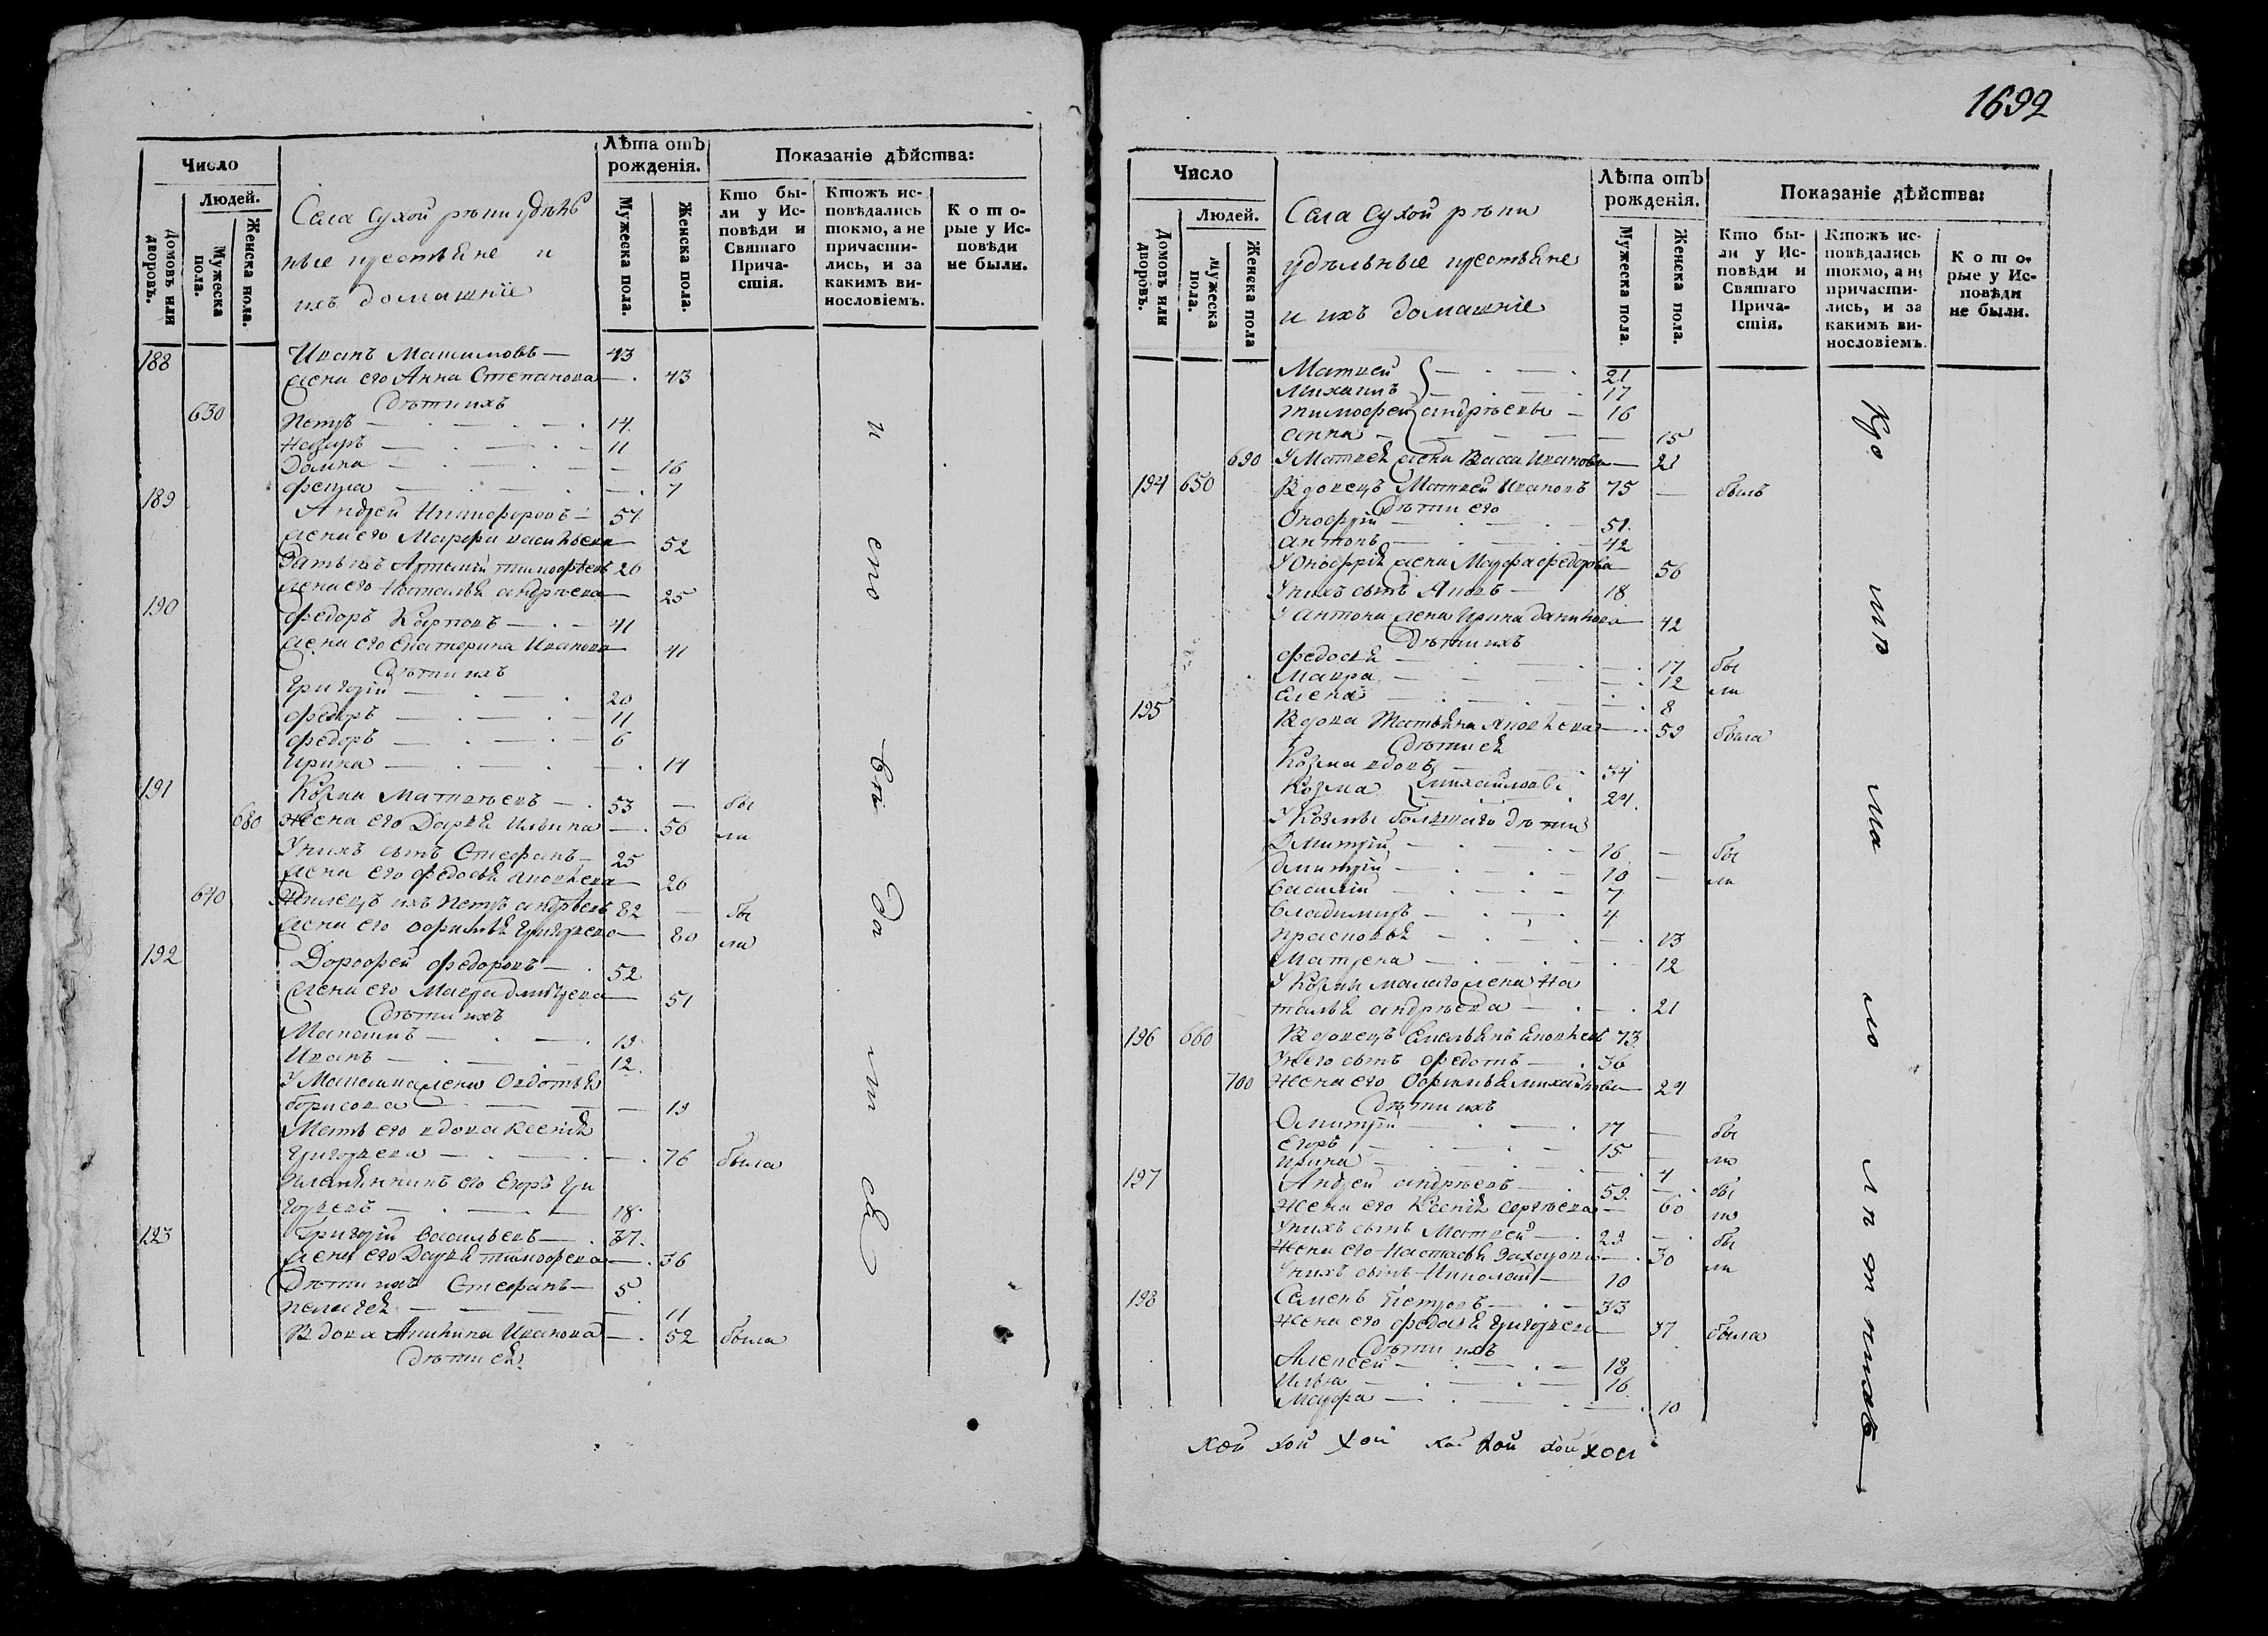 Число
Людей.
Домовъ или дворовъ.
Мужеска пола.
Женска пола.
Села Сухой рѣчки удѣль
ные крестьяне и
ихъ домашніе
Лѣта отъ рожденія.
Мужеска пола.
Женска пола.
Показаніе дѣйства:
Кто бы-
ли у Ис-
повѣди и
Святаго
Прича-
стія.
Ктожъ ис-
повѣдались
токмо, а не
причасти-
лись, и за
какимъ ви-
нословіемъ.
Кото-
рые у Ис-
повѣди
не были.
188 Иванъ Матимовъ — 43
жена его Анна Степанова — 43
дѣти ихъ
630 Петръ — 14.
Назаръ — 11
Домна — 16
Фекла — 7
189 Андрей Никифоровъ — 57
жена его Марфа васильева 52
Зать ихъ Артемій тимофѣевъ 26
жена его Наталья андрѣева 25
190 Федоръ Карповъ — 41
жена его Екатерина Иванова 41
Дѣти ихъ
Григорій — 20
Федоръ — 11
Федоръ — 6
Ирина — 14
191 Козма Матвѣевъ — 53 — бы
680 Жена его Дарья Ильина — 56 ли
У нихъ сынъ Стефанъ — 25
жена его Федосья яковлева 26
640 Жилецъ ихъ Петръ андрѣевъ 82 — бы
жена его Офимья Григорьева — 80 ли
192 Дорофей Федоровъ — 52
жена его Мавра дмитрева 51
дѣти ихъ
19
Иванъ — 12.
жена Овдотья
борисова — 19
Мать его вдова Ксенія
Григорьева — 76 была
Племянникъ его Егоръ Гри
горьевъ — 18.
193 Григорій Васильевъ — 37.
жена его Дарья тимофева — 36
Дѣти ихъ Стефанъ — 5
пелагея — 11
Вдова Акилина Иванова — 52 была
дѣти ея
1692
Число
Людей.
Домовъ или дворовъ.
Мужеска пола.
Женска пола
Села Сухой рѣчки
удѣльные крестьяне
и ихъ домашніе
Лѣта отъ рожденія.
Мужеска пола.
Женска пола.
Показаніе дѣйства:
Кто бы-
ли у Ис-
повѣди и
Святаго
Прича-
стія.
Ктожъ ис-
повѣдались
токмо, а не
причасти-
лись, и за
какимъ ви-
нословіемъ.
Кото-
рые у Ис-
повѣди
не были.
Матвей — 21
Михаилъ — 17
тимофей андрѣевы — 16
анна — 15
690 У Матвея жена Васса Иванова — 21
194 650 Вдовецъ Матвей Ивановъ 75 — былъ
Дѣти его
Онофрій — 51.
антонъ — 42
У Онофрія жена Марфа федорова 56
У нихъ сынъ Яковъ — 18
У антона жена Ирина данилова 42
дѣти ихъ
Федосья — 17 бы
Мавра — 12 ли
Елена — 8
195 Вдова Татьяна Яковлева — 59 была
Дѣти ея
Козма вдовъ 34
Козма михайловы 24.
У Козмы большаго дѣти
Дмитрій — 16 — бы
дмитрій — 10 — ли
василій — 7
владимиръ — 4
прасковья — 13
Матрена — 12
У Козмы малаго жена На
талья андрѣева — 21
196 660 Вдовецъ Емельянъ яковлевъ 73
У него сынъ Федотъ — 36
700 Жена его Офимья михайлова 24
дѣти ихъ
Дмитрій — 17 — бы
Егоръ — 15 — ли
Ирина — 4
197 Андрей андрѣевъ — 59. — бы
Жена его Ксенія сергѣева — 60 ли
У нихъ сынъ Матвей — 29 — бы
Жена его Настасья Захарова — 30 ли
У нихъ сынъ Николай — 10
198 Семенъ Петровъ — 33
Жена его Федосья Григорьева 37 была
Дѣти ихъ
Алексей — 18
Илья — 16
Марфа — 10
хой хой хой хой хой хой хой